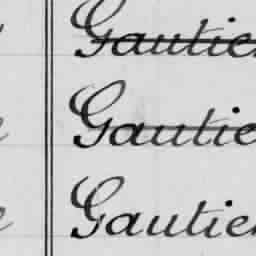 Gautier
Gautie
Gautier